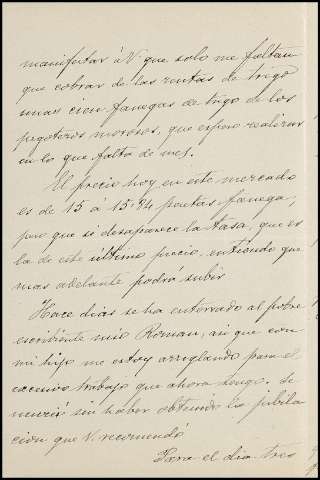 manifestar á V. que solo me faltan
que cobrar de las rentas de trigo
unas cien fanegas de trigo de los
pegoteros morosos, que espero realizar
en lo que falta de mes.
El precio hoy en este mercado
es de 15 á 15-84 pesetas fanega;
pero que si desaparece la tasa, que es
la de este último precio, entiendo que
mas adelante podrá subir
Hace dias se ha enterrado al pobre
escribiente mio Roman, asi que con
mi hijo me estoy arreglando para el
excesivo trabajo que ahora tengo. Se
murió sin haber obtenido la jubila
cion que V. recomendó
Para el dia tres